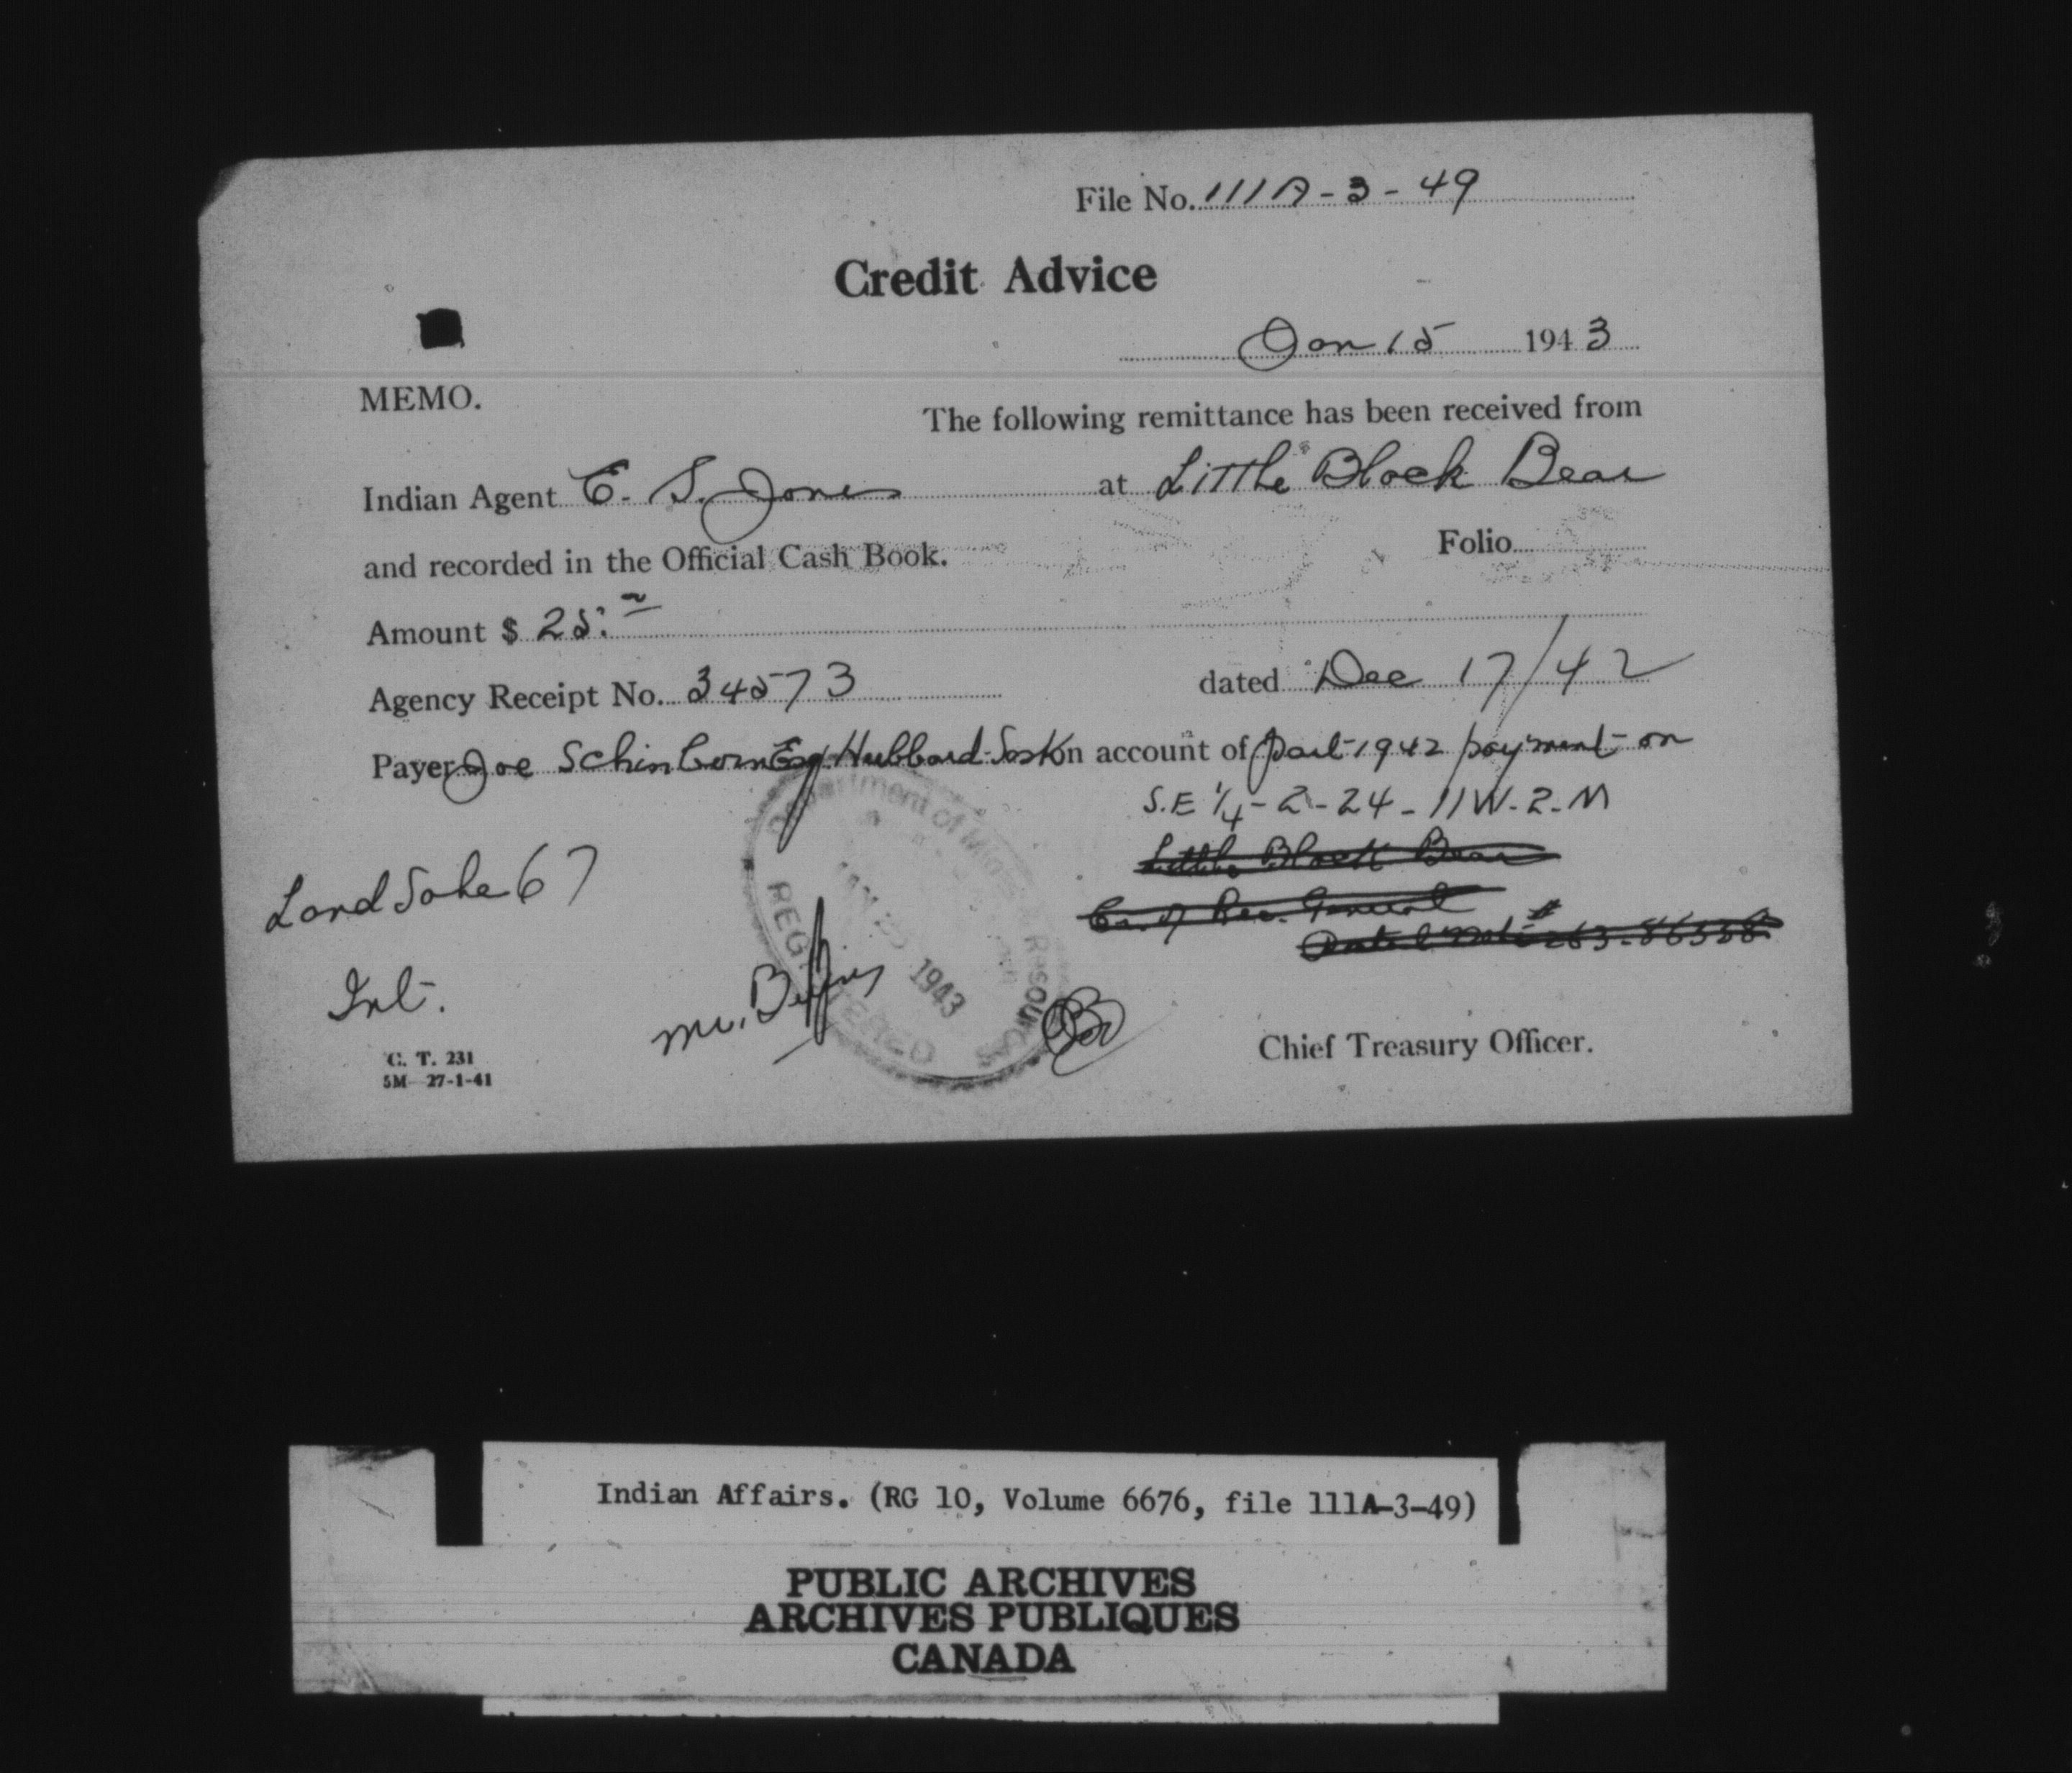 File No. 111A-3-49
Credit Advice
Jan 15 1943
MEMO.
The following remittance has been received from
Indian Agent E. S. Jones at Little Black Bear
and recorded in the Official Cash Book. Folio
Amount $ 25.
Agency Receipt No. 34573 dated Dec 17/42
Payer Joe Schinborn Esq. Hubbard Sask on account of part 1942 payment on
S.E ¼-2-24-11W-2-M
Little Black Bear
Land Sale 67
Department of Mines & Resources
REGISTERED
1943
Int.
Mr.
Chief Treasury Officer.
C. T. 231
5M 27-1-41
Indian Affairs. (RG 10, Volume 6676, file 111A-3-49)
PUBLIC ARCHIVES
ARCHIVES PUBLIQUES
CANADA